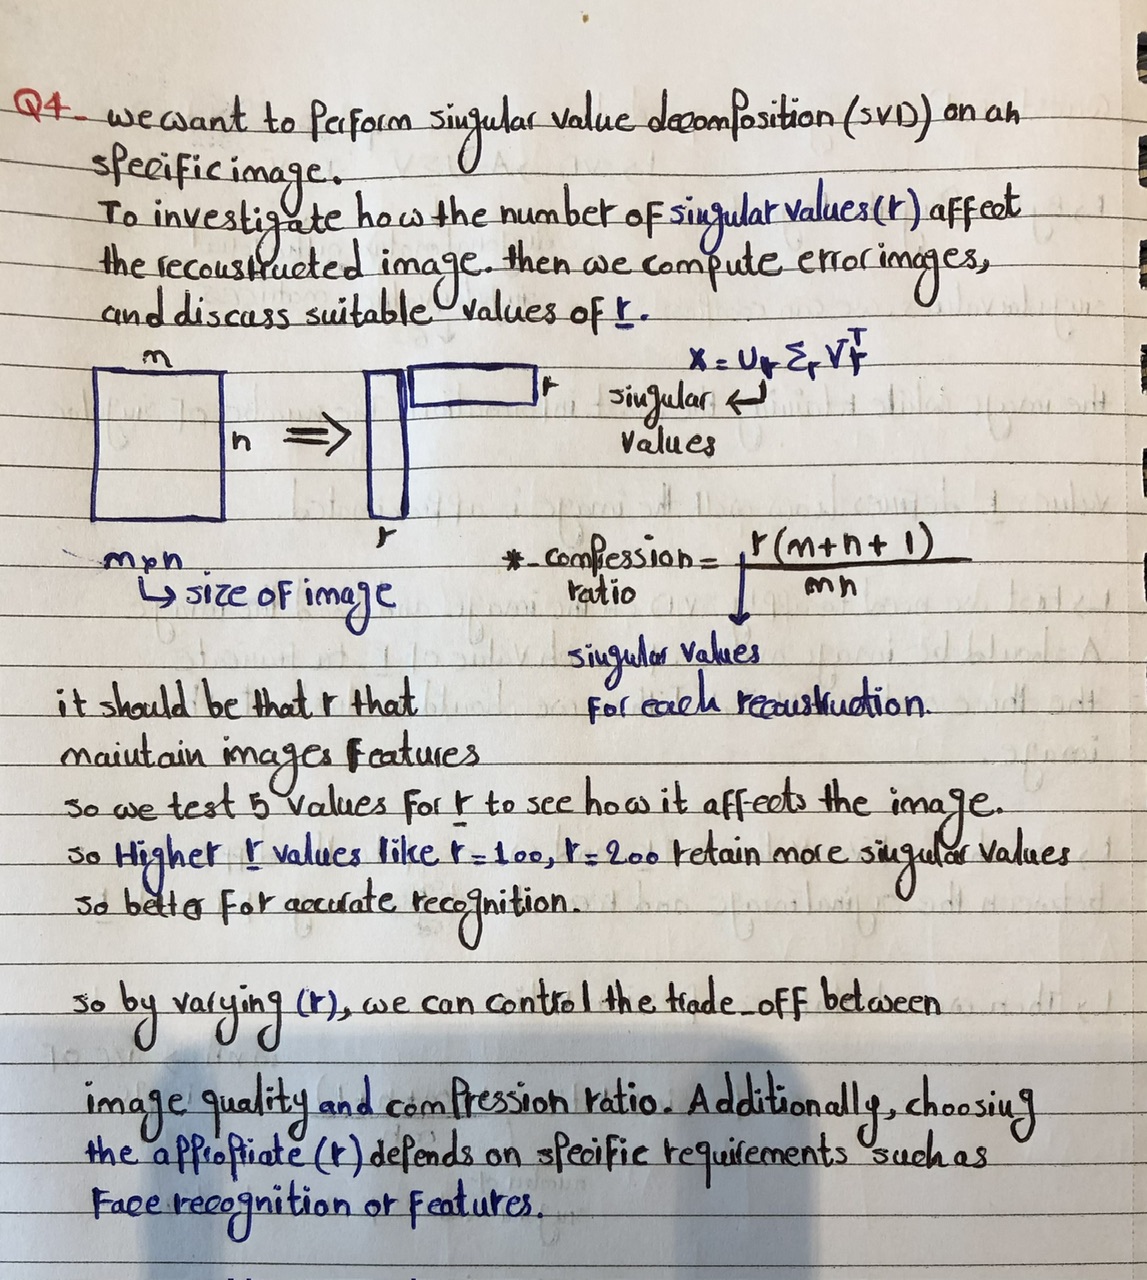 Q4- we want to Perform singular value decomposition (SVD) on an
specific image.
To investigate how the number of singular values(r) affect
the reconstructed image. then we compute error images,
and discuss suitable values of r.
m
n
⇒
r
r
X = Ur Σr VrT
singular
values
mxn
↳ size of image
*- compession = r(m+n+1)
ratio mn
singular values
For each reconstruction.
it should be that r that
maintain images Features
so we test 5 values For r to see how it affects the image.
so Higher r values like r=100, r=200 retain more singular values
so better For accurate recognition.
so by varying (r), we can control the trade-off between
image quality and compression ratio. Additionally, choosing
the appropriate (r) depends on specific requirements such as
Face recognition or Features.